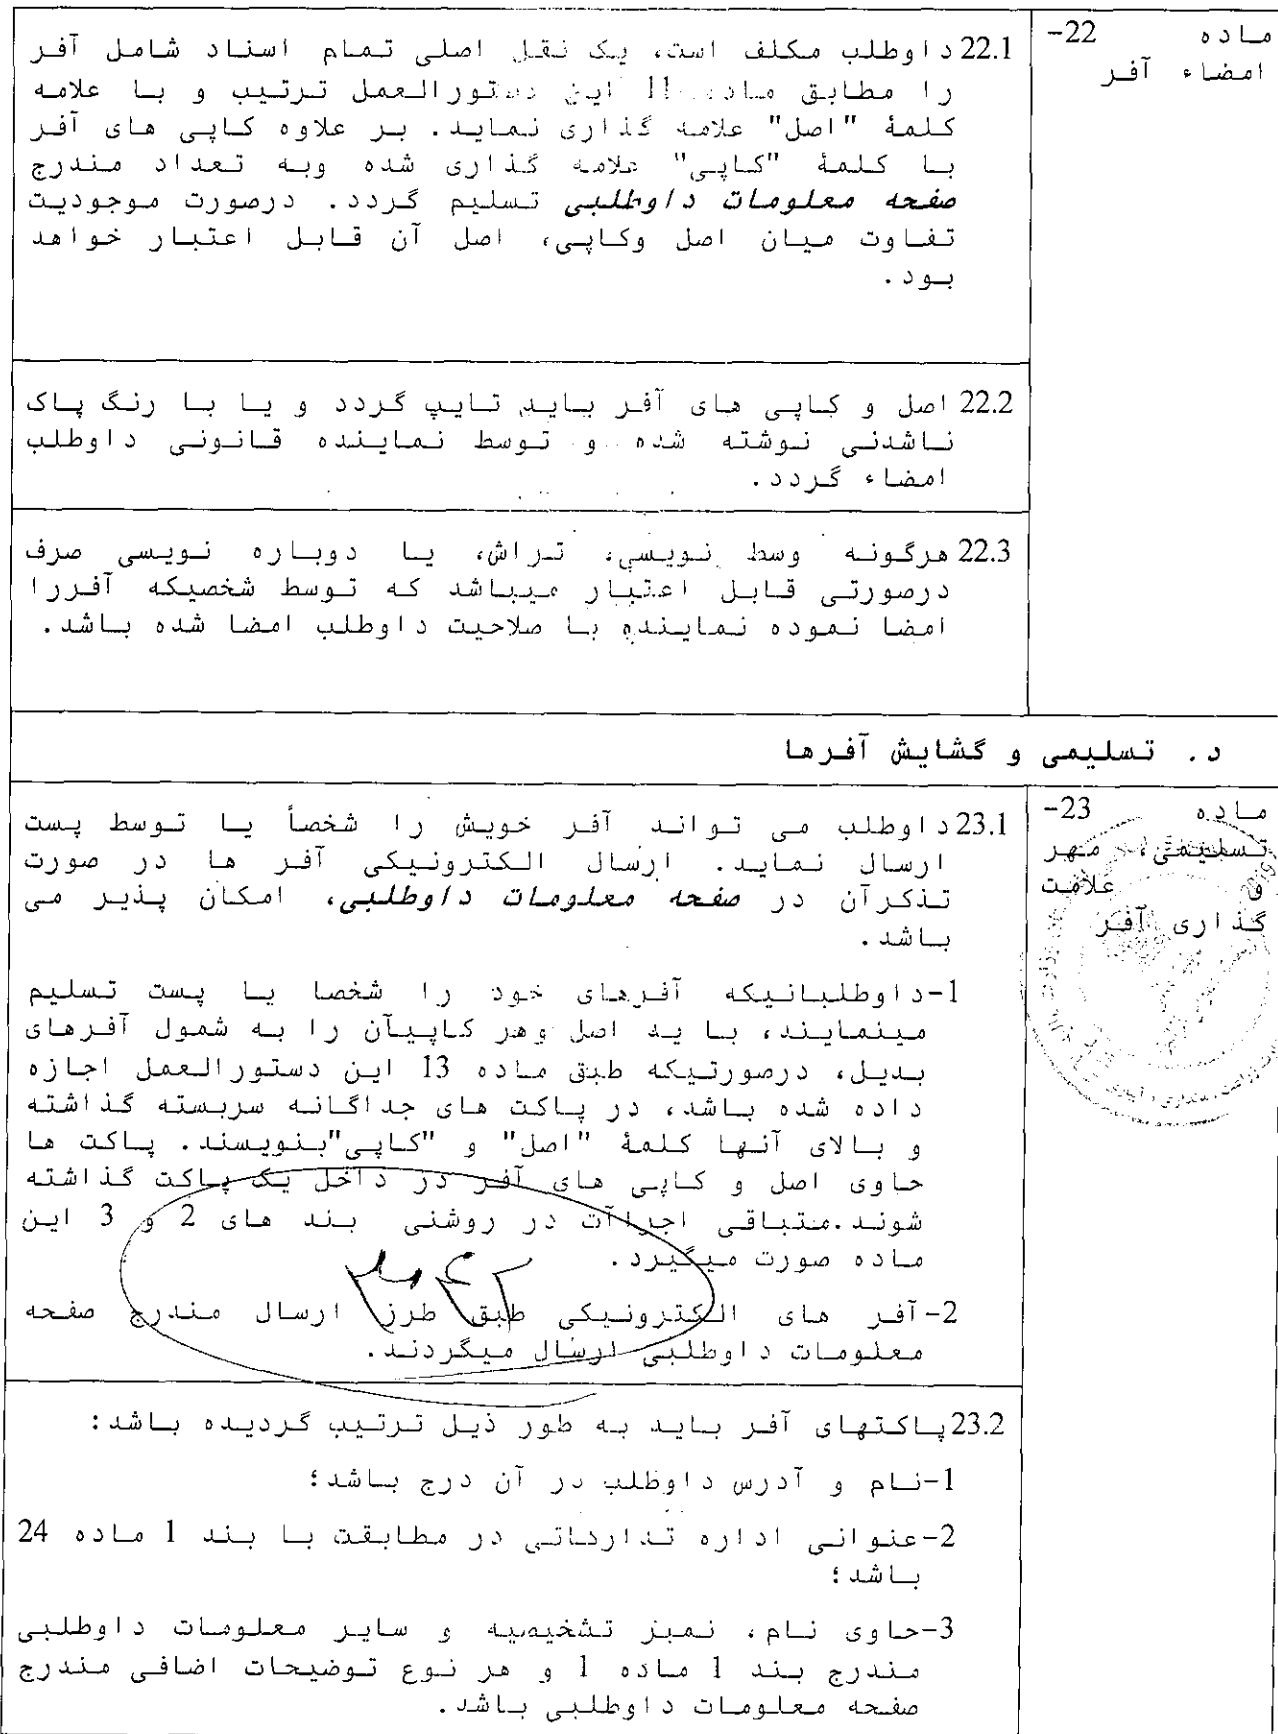 ماده 22-
امضاء آفر
22.1 داوطلب مکلف است، یک نقل اصلی تمام اسناد شامل آفر
را مطابق ماده 11 این دستورالعمل ترتیب و با علامه
کلمۀ "اصل" علامه گذاری نماید. بر علاوه کاپی های آفر
با کلمۀ "کاپی" علامه گذاری شده وبه تعداد مندرج
صفحه معلومات داوطلبی تسلیم گردد. درصورت موجودیت
تفاوت میان اصل وکاپی، اصل آن قابل اعتبار خواهد
بود.
22.2 اصل و کاپی های آفر باید تایپ گردد و یا با رنگ پاک
ناشدنی نوشته شده و توسط نماینده قانونی داوطلب
امضاء گردد.
22.3 هرگونه وسط نویسی، تراش، یا دوباره نویسی صرف
درصورتی قابل اعتبار میباشد که توسط شخصیکه آفررا
امضا نموده نماینده با صلاحیت داوطلب امضا شده باشد.
د. تسلیمی و گشایش آفرها
ماده 23-
تسلیمی، مهر
و علامت
گذاری آفر
23.1 داوطلب می تواند آفر خویش را شخصاً یا توسط پست
ارسال نماید. ارسال الکترونیکی آفر ها در صورت
تذکرآن در صفحه معلومات داوطلبی، امکان پذیر می
باشد.
1-داوطلبانیکه آفرهای خود را شخصا یا پست تسلیم
مینمایند، با ید اصل وهر کاپیآن را به شمول آفرهای
بدیل، درصورتیکه طبق ماده 13 این دستورالعمل اجازه
داده شده باشد، در پاکت های جداگانه سربسته گذاشته
و بالای آنها کلمۀ "اصل" و "کاپی"بنویسند. پاکت ها
حاوی اصل و کاپی های آفر در داخل یک پاکت گذاشته
شوند.متباقی اجراآت در روشنی بند های 2 و 3 این
ماده صورت میگیرد.
2-آفر های الکترونیکی طبق طرز ارسال مندرج صفحه
معلومات داوطلبی ارسال میگردند.
23.2 پاکتهای آفر باید به طور ذیل ترتیب گردیده باشد:
1-نام و آدرس داوطلب در آن درج باشد؛
2-عنوانی اداره تدارکاتی در مطابقت با بند 1 ماده 24
باشد؛
3-حاوی نام، نمبر تشخیصیه و سایر معلومات داوطلبی
مندرج بند 1 ماده 1 و هر نوع توضیحات اضافی مندرج
صفحه معلومات داوطلبی باشد.